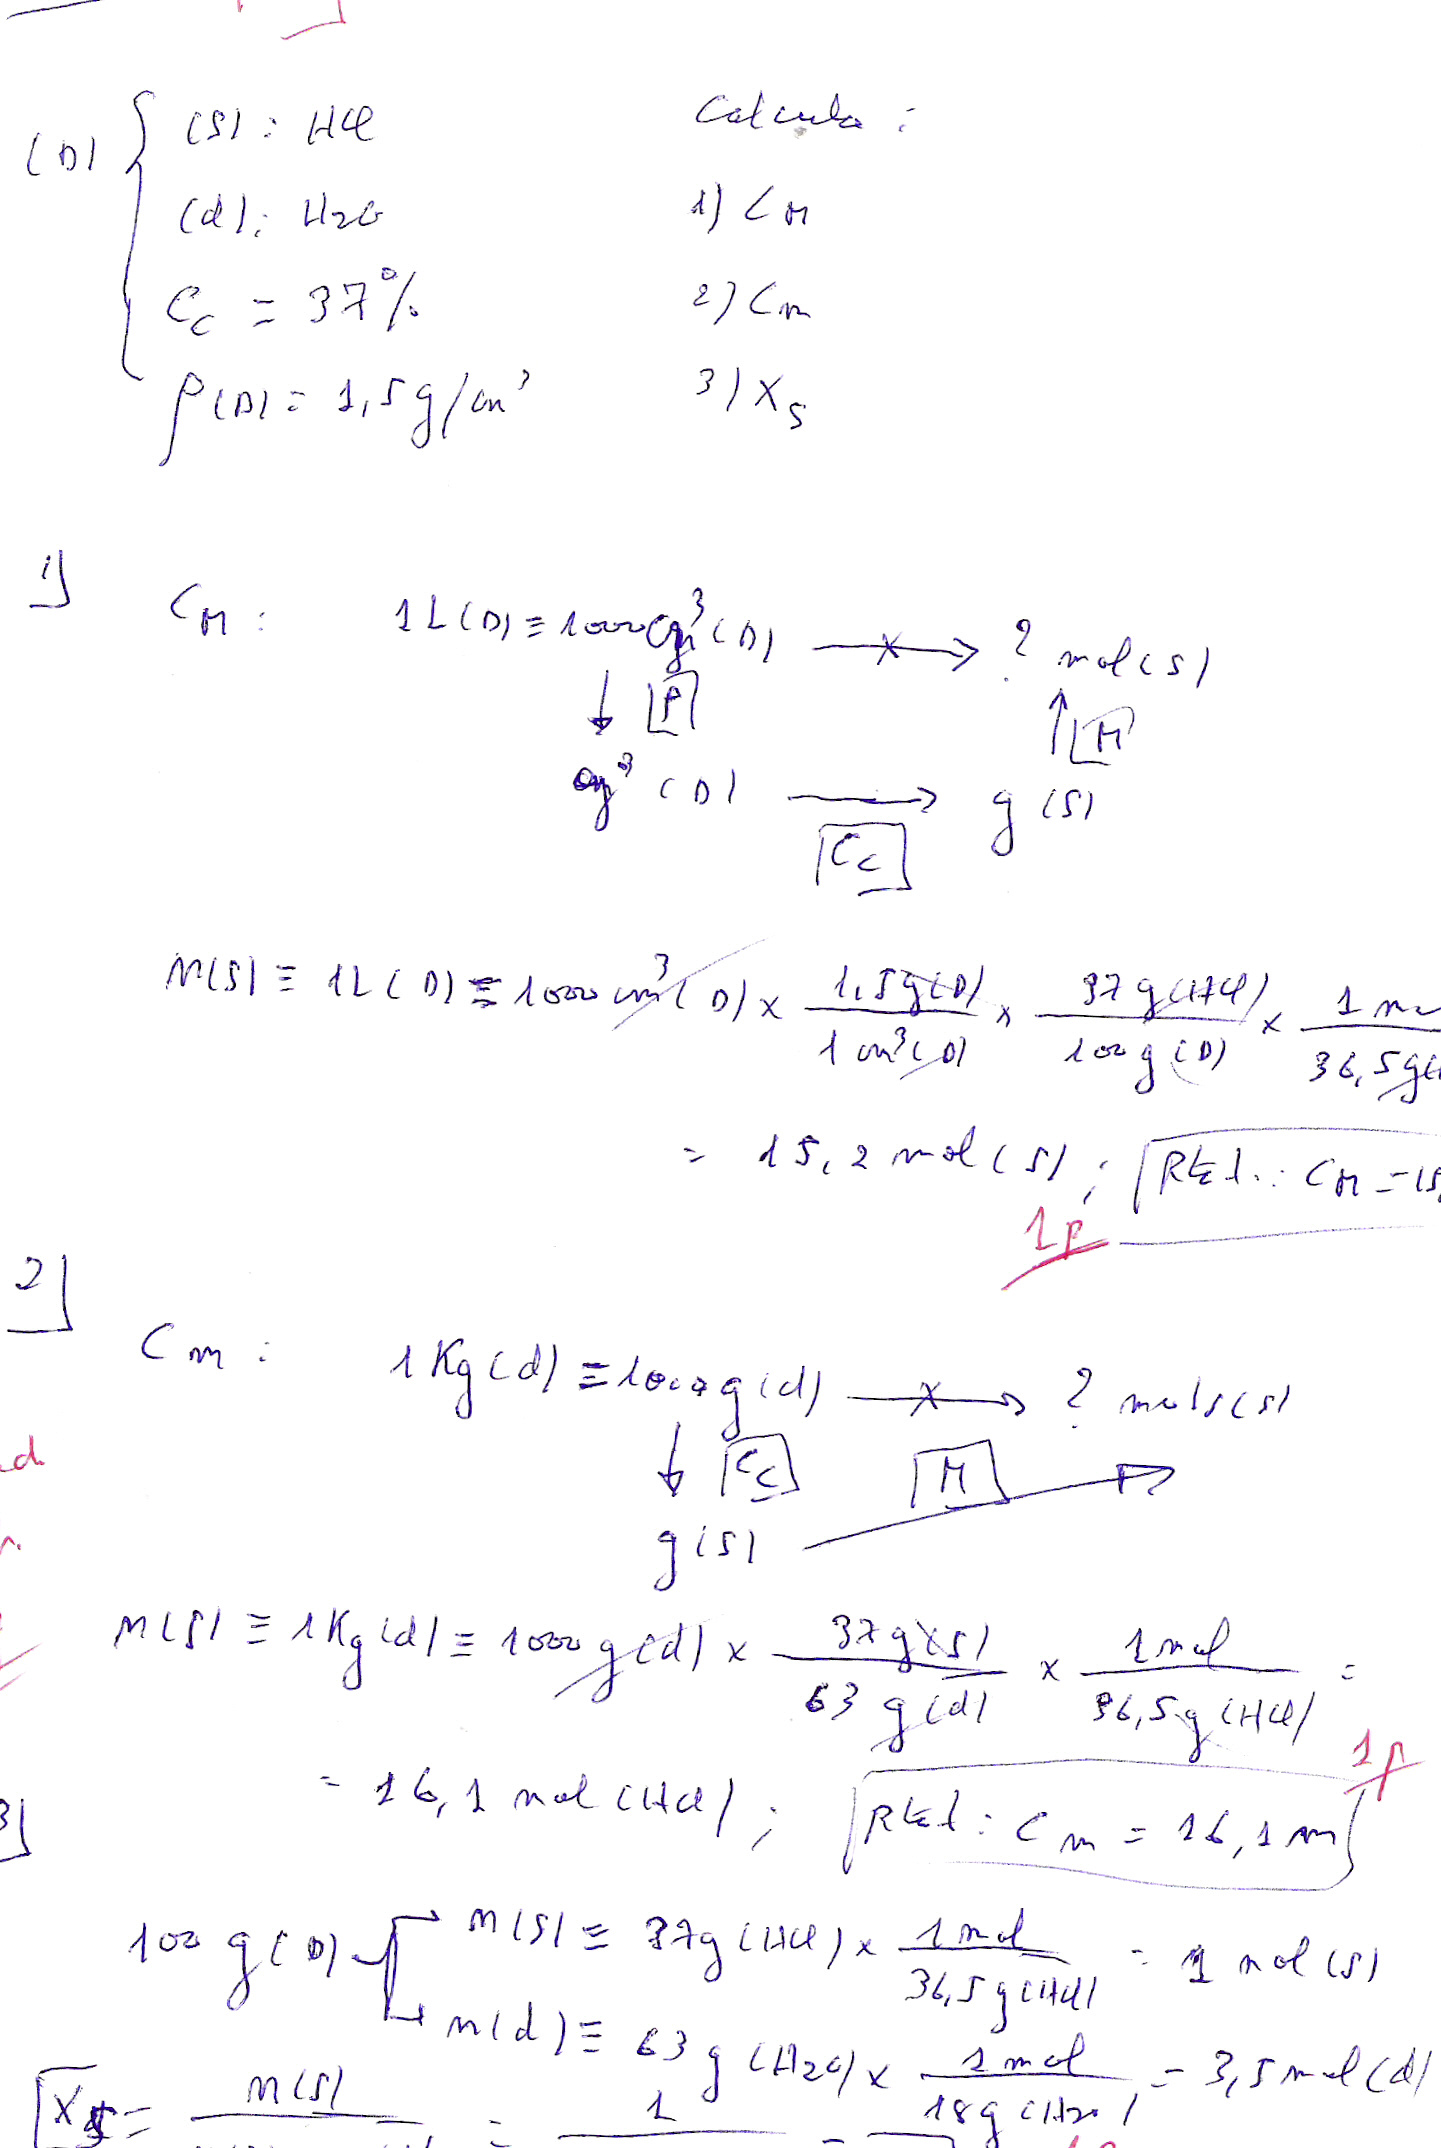 (D) { (S): HCl Calcula:
(d): H2O 1) CM
Cc = 37% 2) Cm
ρ(D) = 1,5 g/cm³ 3) Xs
1] CM: 1L(D) ≡ 1000 cm³(D) —x→ ? mol(S)
↓ [ρ] ↑ [M]
(D) → g(S)
[Cc]
n(S) ≡ 1L(D) ≡ 1000 cm³(D) x 1,5g(D)/1cm³(D) x 37g(HCl)/100g(D) x 1 m/36,5g(
= 15,2 mol(S); CM = 15,
1p
2] Cm: 1Kg(d) ≡ 1000g(d) —x→ ? mols(s)
↓ [Cc] [M]
g(S)
n(S) ≡ 1Kg(d) ≡ 1000g(d) x 37g(S)/63g(d) x 1mol/36,5g(HCl) =
= 16,1 mol(HCl); Cm = 16,1 m
1p
3]
100g(D) n(S) ≡ 37g(HCl) x 1mol/36,5g(HCl) = 1 mol(S)
n(d) ≡ 63g(H2O) x 1mol/18g(H2O) = 3,5 mol(d)
Xs = n(S) = 1 =